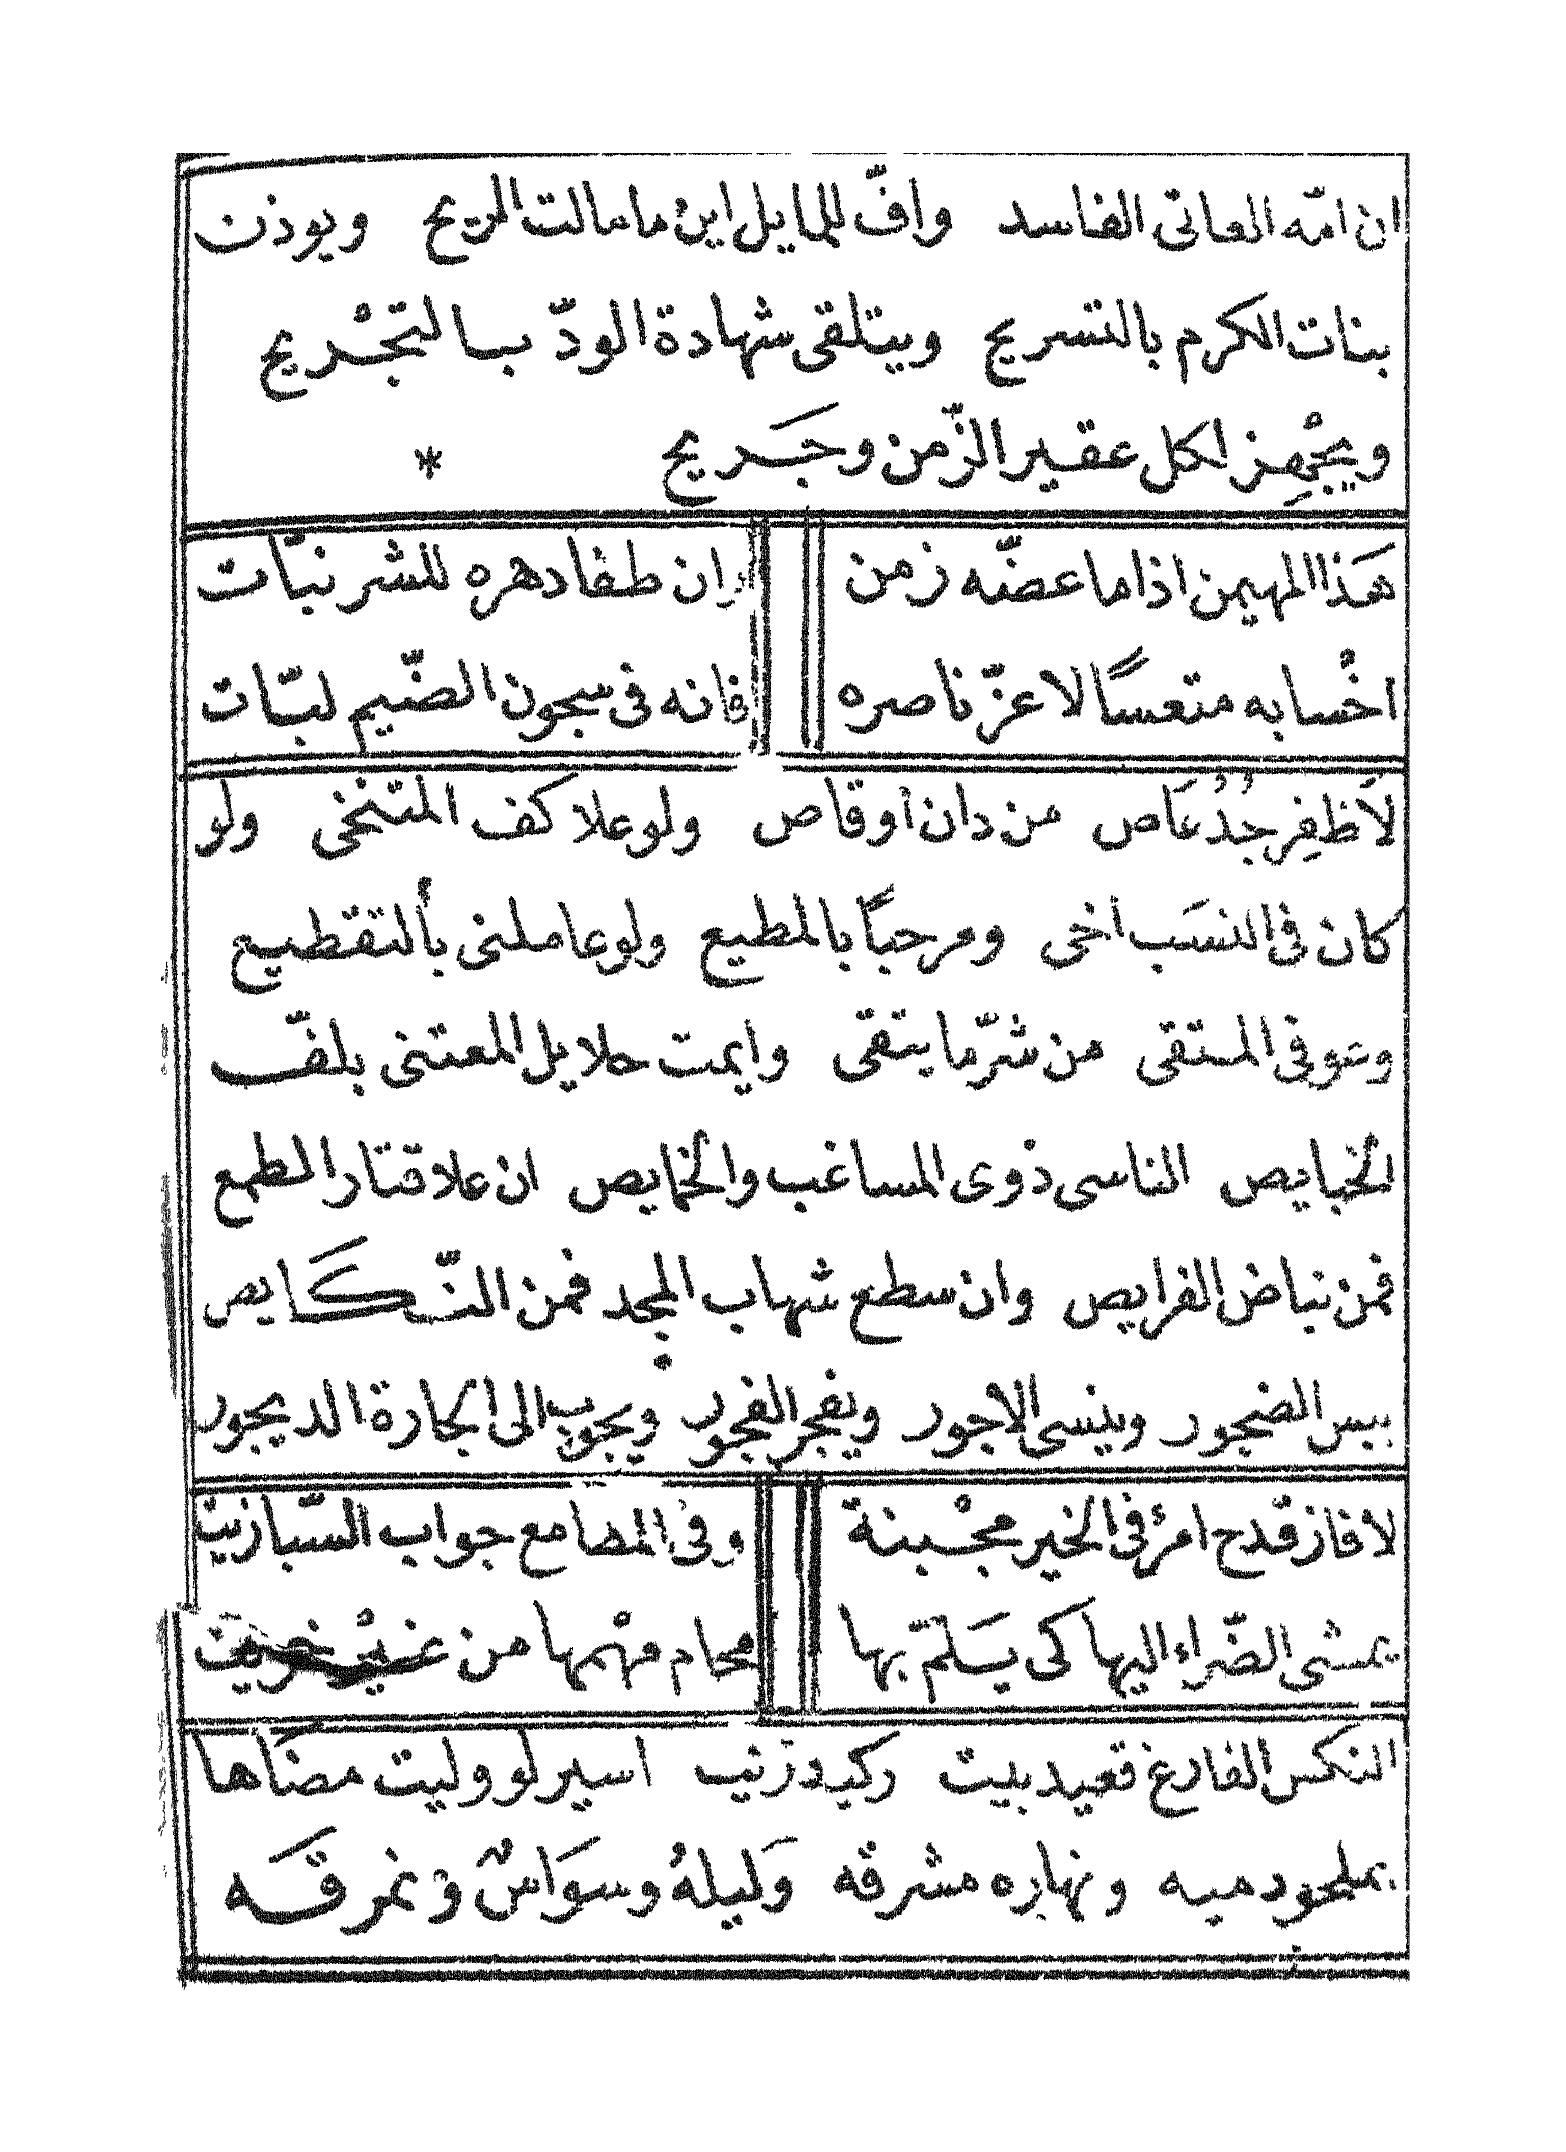 ان امّه العاتى الفاسد وافّ للمايل اينُ ما مالت الريح ويوذن
بنات الكرم بالتسريح ويتلقى شهادة الودّ بالتجْريح
ويجْهِز لكل عقير الزّمن وجَريح *
هَذا المهيمن اذا ما عضّه زمن وان طغا دهره للشر نبّات
اخْسا به متعسًا لا عزّ ناصره فانه فى سجون الضّيم لبّات
لاَ ظفِر جُدُ عَاص من دان أو قاص ولو علا كف المتنخى ولو
كان فى النسَب أخى ومرحباً بالمطيع ولو عاملنى بألتقطيع
وعَو فى المتقى من شرّ ما يتقى وايمت حلايل المعتنى بلفّ
الخبايص الناسى ذوى المساغب والخمايص ان علا قتار المطمع
فمن نباض الفرايص وان سطع شهاب المجد فمن النّكَايص
بيس الضجور وينسى الاجور ويفجر الفجور ويجوب الى الجارة الديجور
لا فاز قدح امرُئ فى الخير مجْبنة وفى المضامع جواب السّبازيت
يمشى الضّراء اليها كى يسَلمّ بها محام مهْمها من غير خريت
النكس الفارغ قعيد بيت ركيد زنيب اسير لو وليت مضاها
بملحود ميه ونهاره مشرقه وَليلهُ وسوَاسٌ ونمرقَه